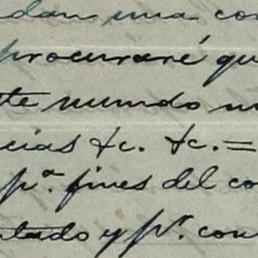 dan una co
procuraré qu
te mundo n
cias &c. &c. =
pª. fines del co
ntado y pr. con